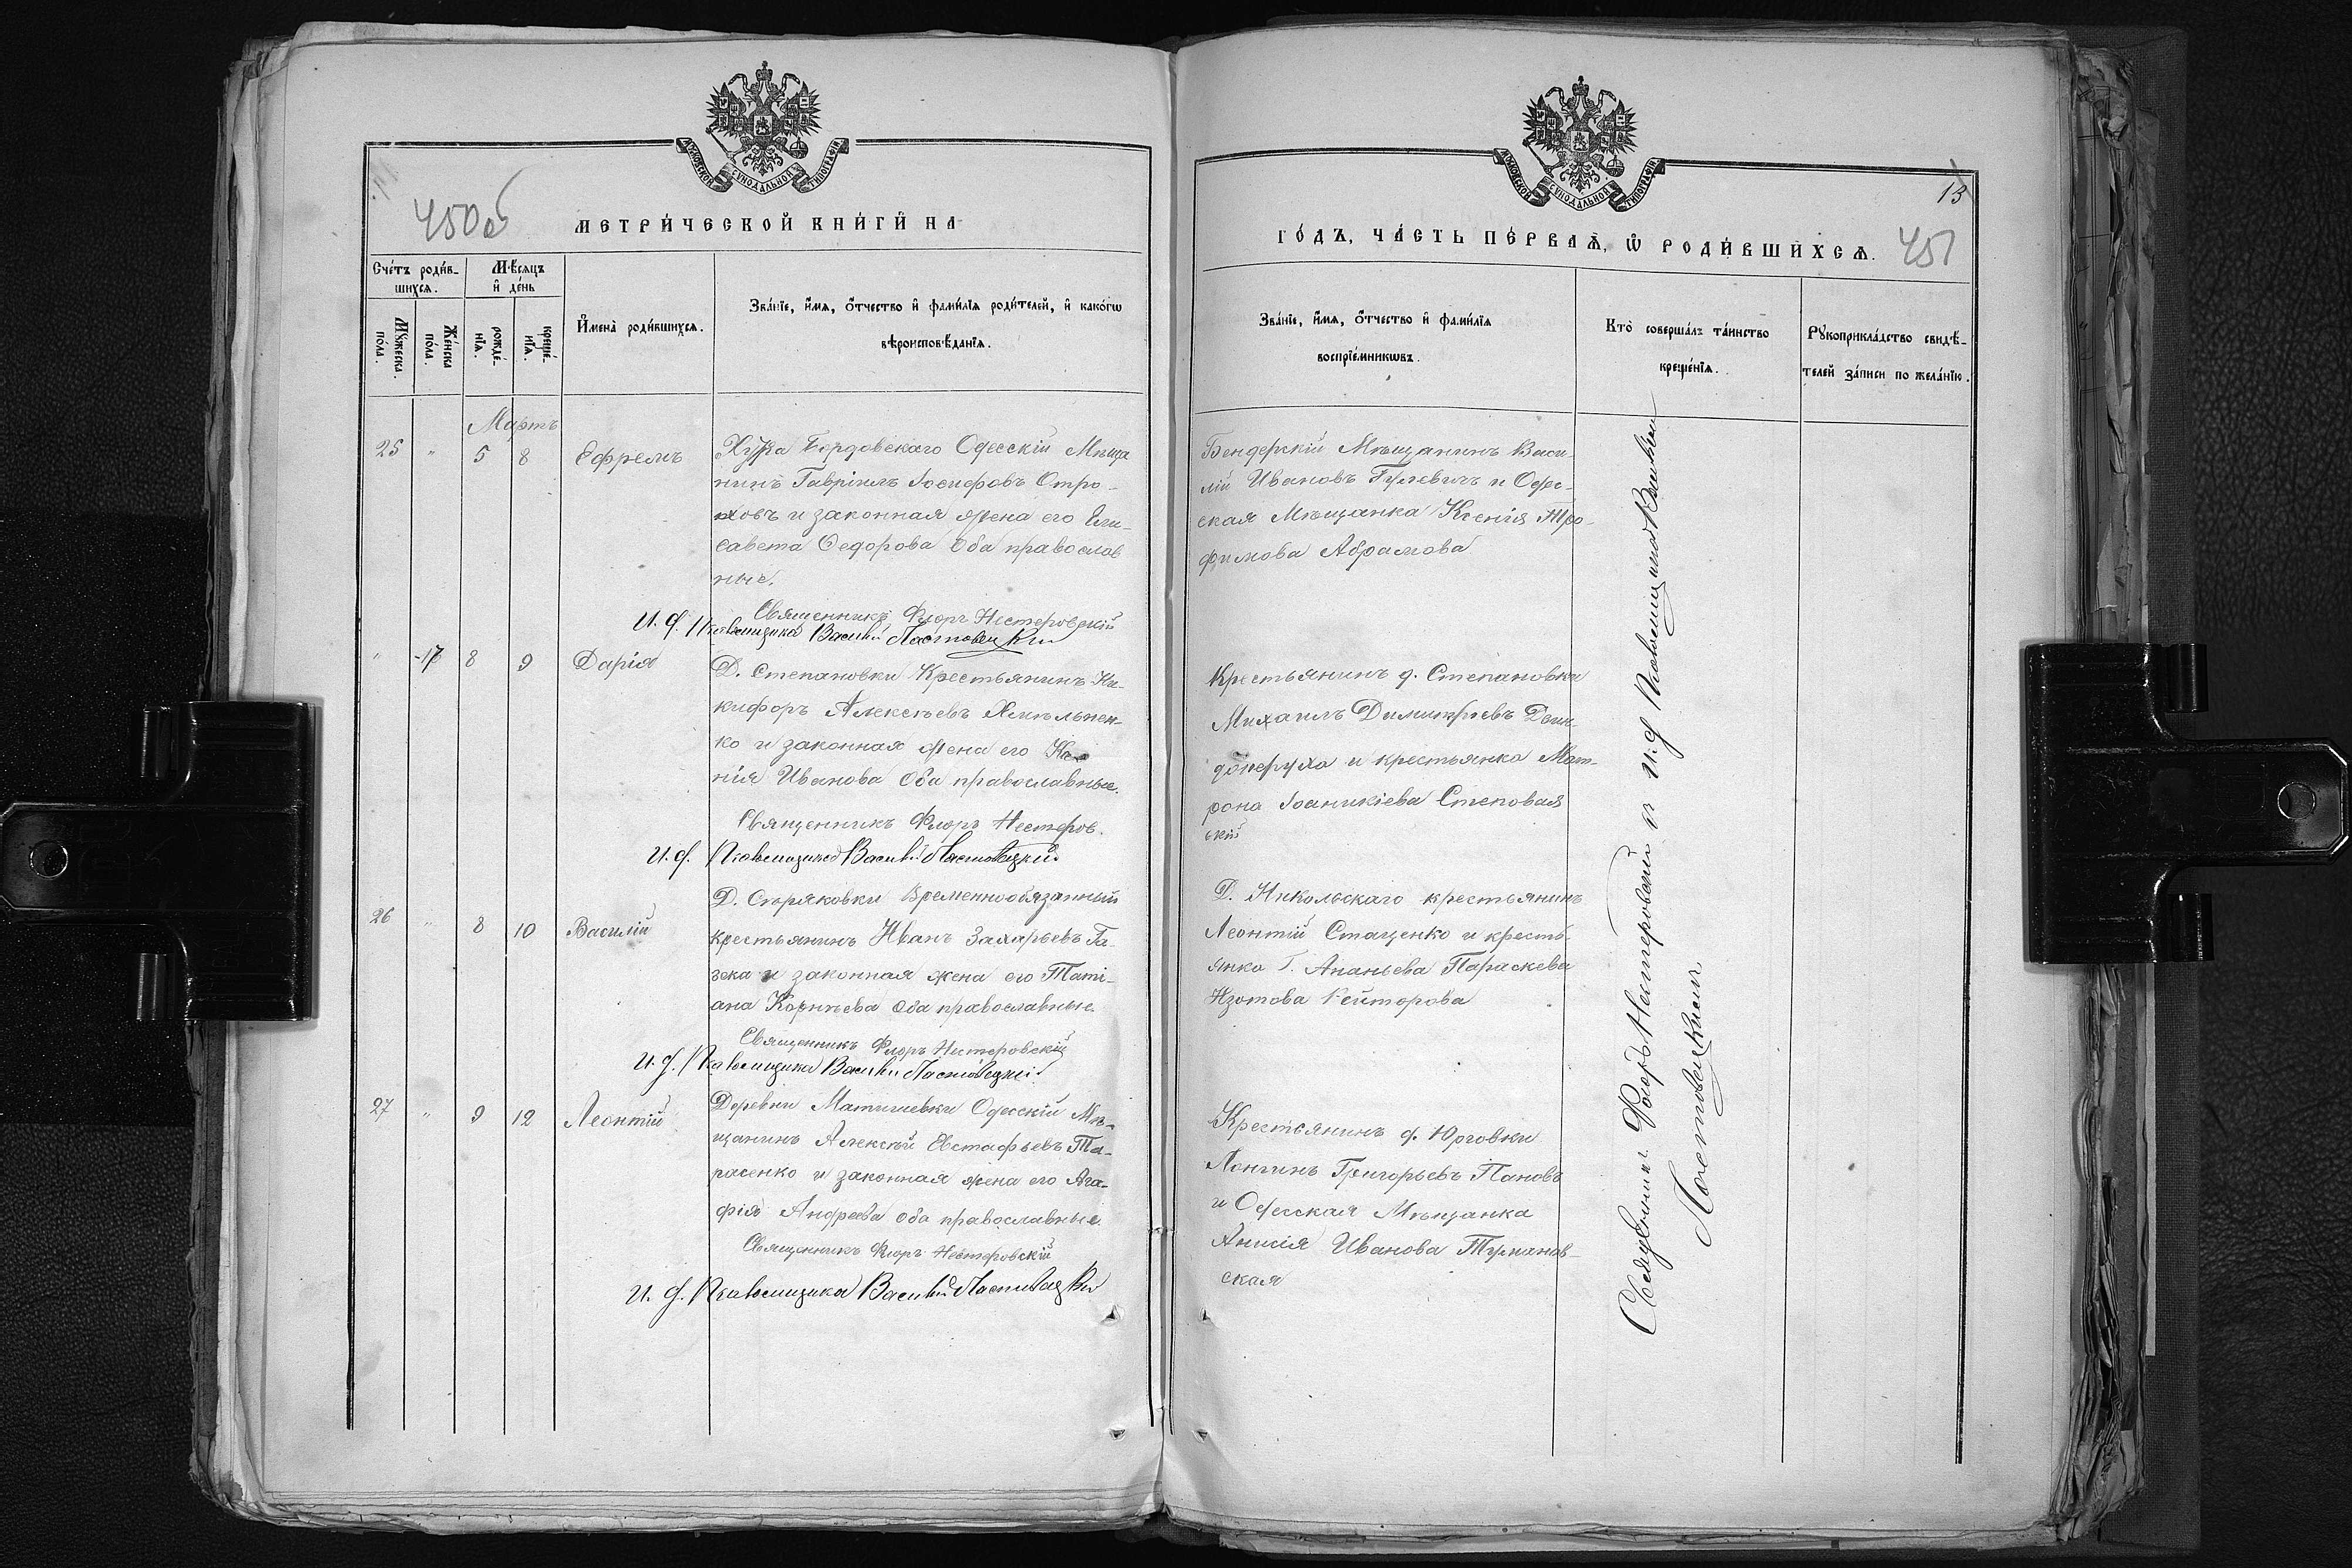 МОСКОВСКОЙ СѴНОДАЛЬНОЙ ТИПОГРАФІИ
450 об
МЕТРИ́ЧЕСКОЙ КНИ́ГИ НА
Сче́тъ роди́в-
шихсѧ.
М‑ѣ́сѧцъ
и҆ де́нь
Мꙋ́жеска по́ла.
Же́нска по́ла.
рожде́-
нїѧ.
креще́-
нїѧ.
И҆мена̀ роди́вшихсѧ.
Зва́нїе, и҆́мѧ, ѻ҆́тчество и҆ фами́лїѧ роди́телей, и҆ како́гѡ
вѣроисповѣ́данїѧ.
Мартъ
25 " 5 8 Ефремъ
Хут҃ра Бордовскаго Одесскій Мѣща
нинъ Гавріилъ Іосифовъ Отро-
ховъ и законная жена его Ели-
савета Ѳедорова Оба православ
ные.
Священникъ Флоръ Нестеровскій
И. д. Псаломщика Василій Ластовецкій
" 17 8 9 Дарія
Д. Степановки Крестьянинъ Ни-
кифоръ Алексѣевъ Хмѣльнен-
ко и законная жена его
нія Иванова Оба православные.
Священникъ Флоръ Нестеров.
И. д. Псаломщика Василій Ластовецкій
26 " 8 10 Василій
Д. Скоряковки Временнообязанный
крестьянинъ Иванъ Захарьевъ Га-
зека и законная жена его Таті-
ана Корнѣева Оба православные.
Священникъ Флоръ Нестеровскій
И. д. Псаломщика Василій Ластовецкій
27 " 9 12 Леонтій
Деревни Матишевки Одесскій Мѣ-
щанинъ Алексѣй Евстафьевъ Та-
расенко и законная жена его Ага-
фія Андреева оба православные.
Священникъ Флоръ Нестеровскій
И. д. Псаломщика Василій Ластовецкій
МОСКОВСКОЙ СѴНОДАЛЬНОЙ ТИПОГРАФІИ
13
ГО́ДЪ, ЧА́СТЬ ПЕ́РВАѦ, Ѡ҆ РОДИ́ВШИХСѦ.
451
Зва́нїе, и҆́мѧ, ѻ҆́тчество и҆ фами́лїѧ
воспрїе́мникѡвъ.
Кто̀ соверша́лъ та́инство
креще́нїѧ.
Рꙋкоприкла́дство свидѣ́-
телей за́писи по жела́нїю.
Бендерскій Мѣщанинъ Васи-
лій Ивановъ Гулевичъ и Одес-
ская Мѣщанка Ксенія Тро-
фимова Абрамова
Крестьянинъ д. Степановки
Михаилъ Димитріевъ
и крестьянка Мат-
рона Іоаникіева Степовая
скій
Д. Никольскаго крестьянинъ
Леонтій Стаценко и кресть-
янка Г. Ананьева Параскева
Изотова
Крестьянинъ д. Юрговки
Лонгинъ Григорьевъ Пановъ
и Одесская Мѣщанка
Анисія Иванова Турканов-
ская
Священникъ Флоръ Нестеровскій и и. д. Псаломщика Василій
Ластовецкій